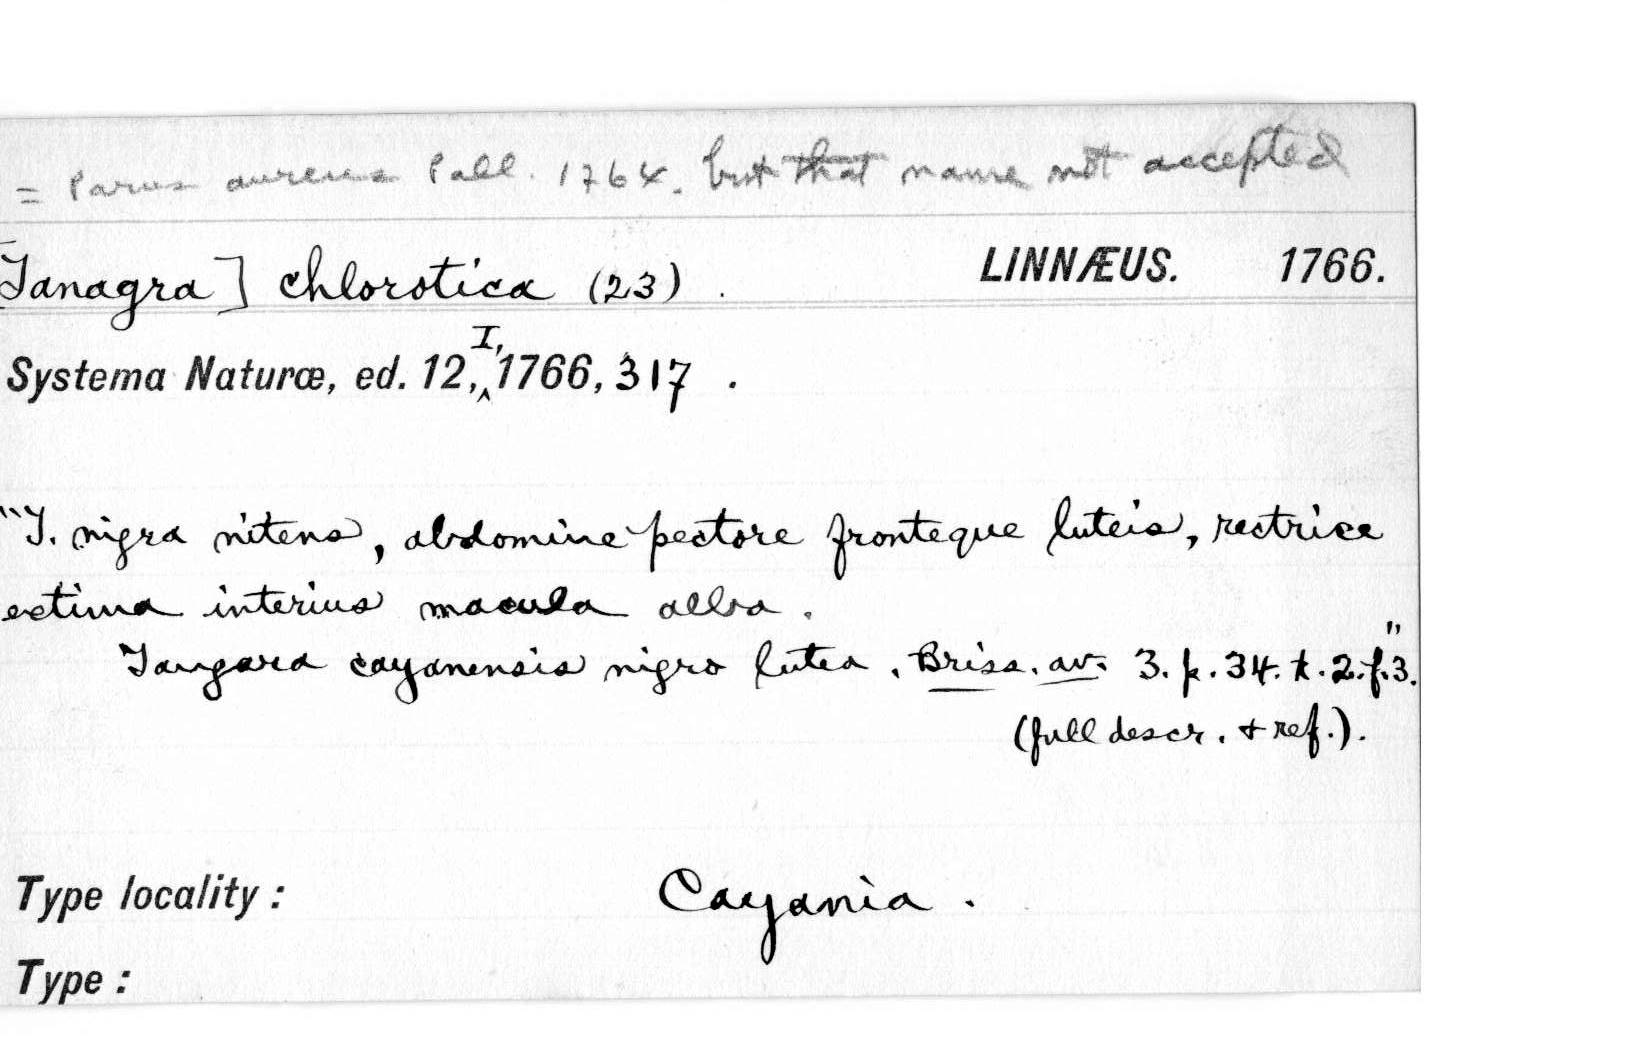 = Parus aureus Pall. 1764. but that name not accepted
[Tanagra] chlorotica (23). LINNÆUS. 1766.
Systema Naturæ, ed. 12, I, 1766, 317.
"T. nigra nitens, abdomine pectore fronteque luteis, rectrice
extima interius macula alba.
Tangara cayanensis nigro lutea. Briss. av. 3. p. 34. t. 2. f. 3."
(full descr. + ref.).
Type locality: Cayania.
Type: